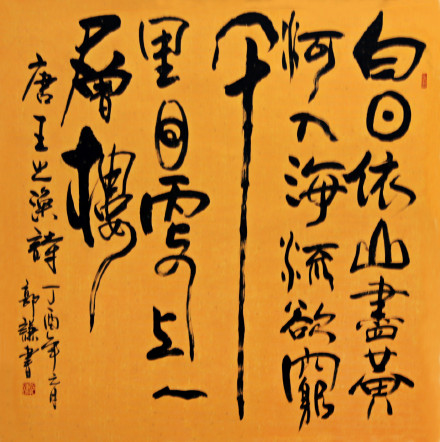 白日依山盡黄
河入海流欲窮
千
里目更上一
層樓
唐王之渙詩
丁酉年月
郭謙書